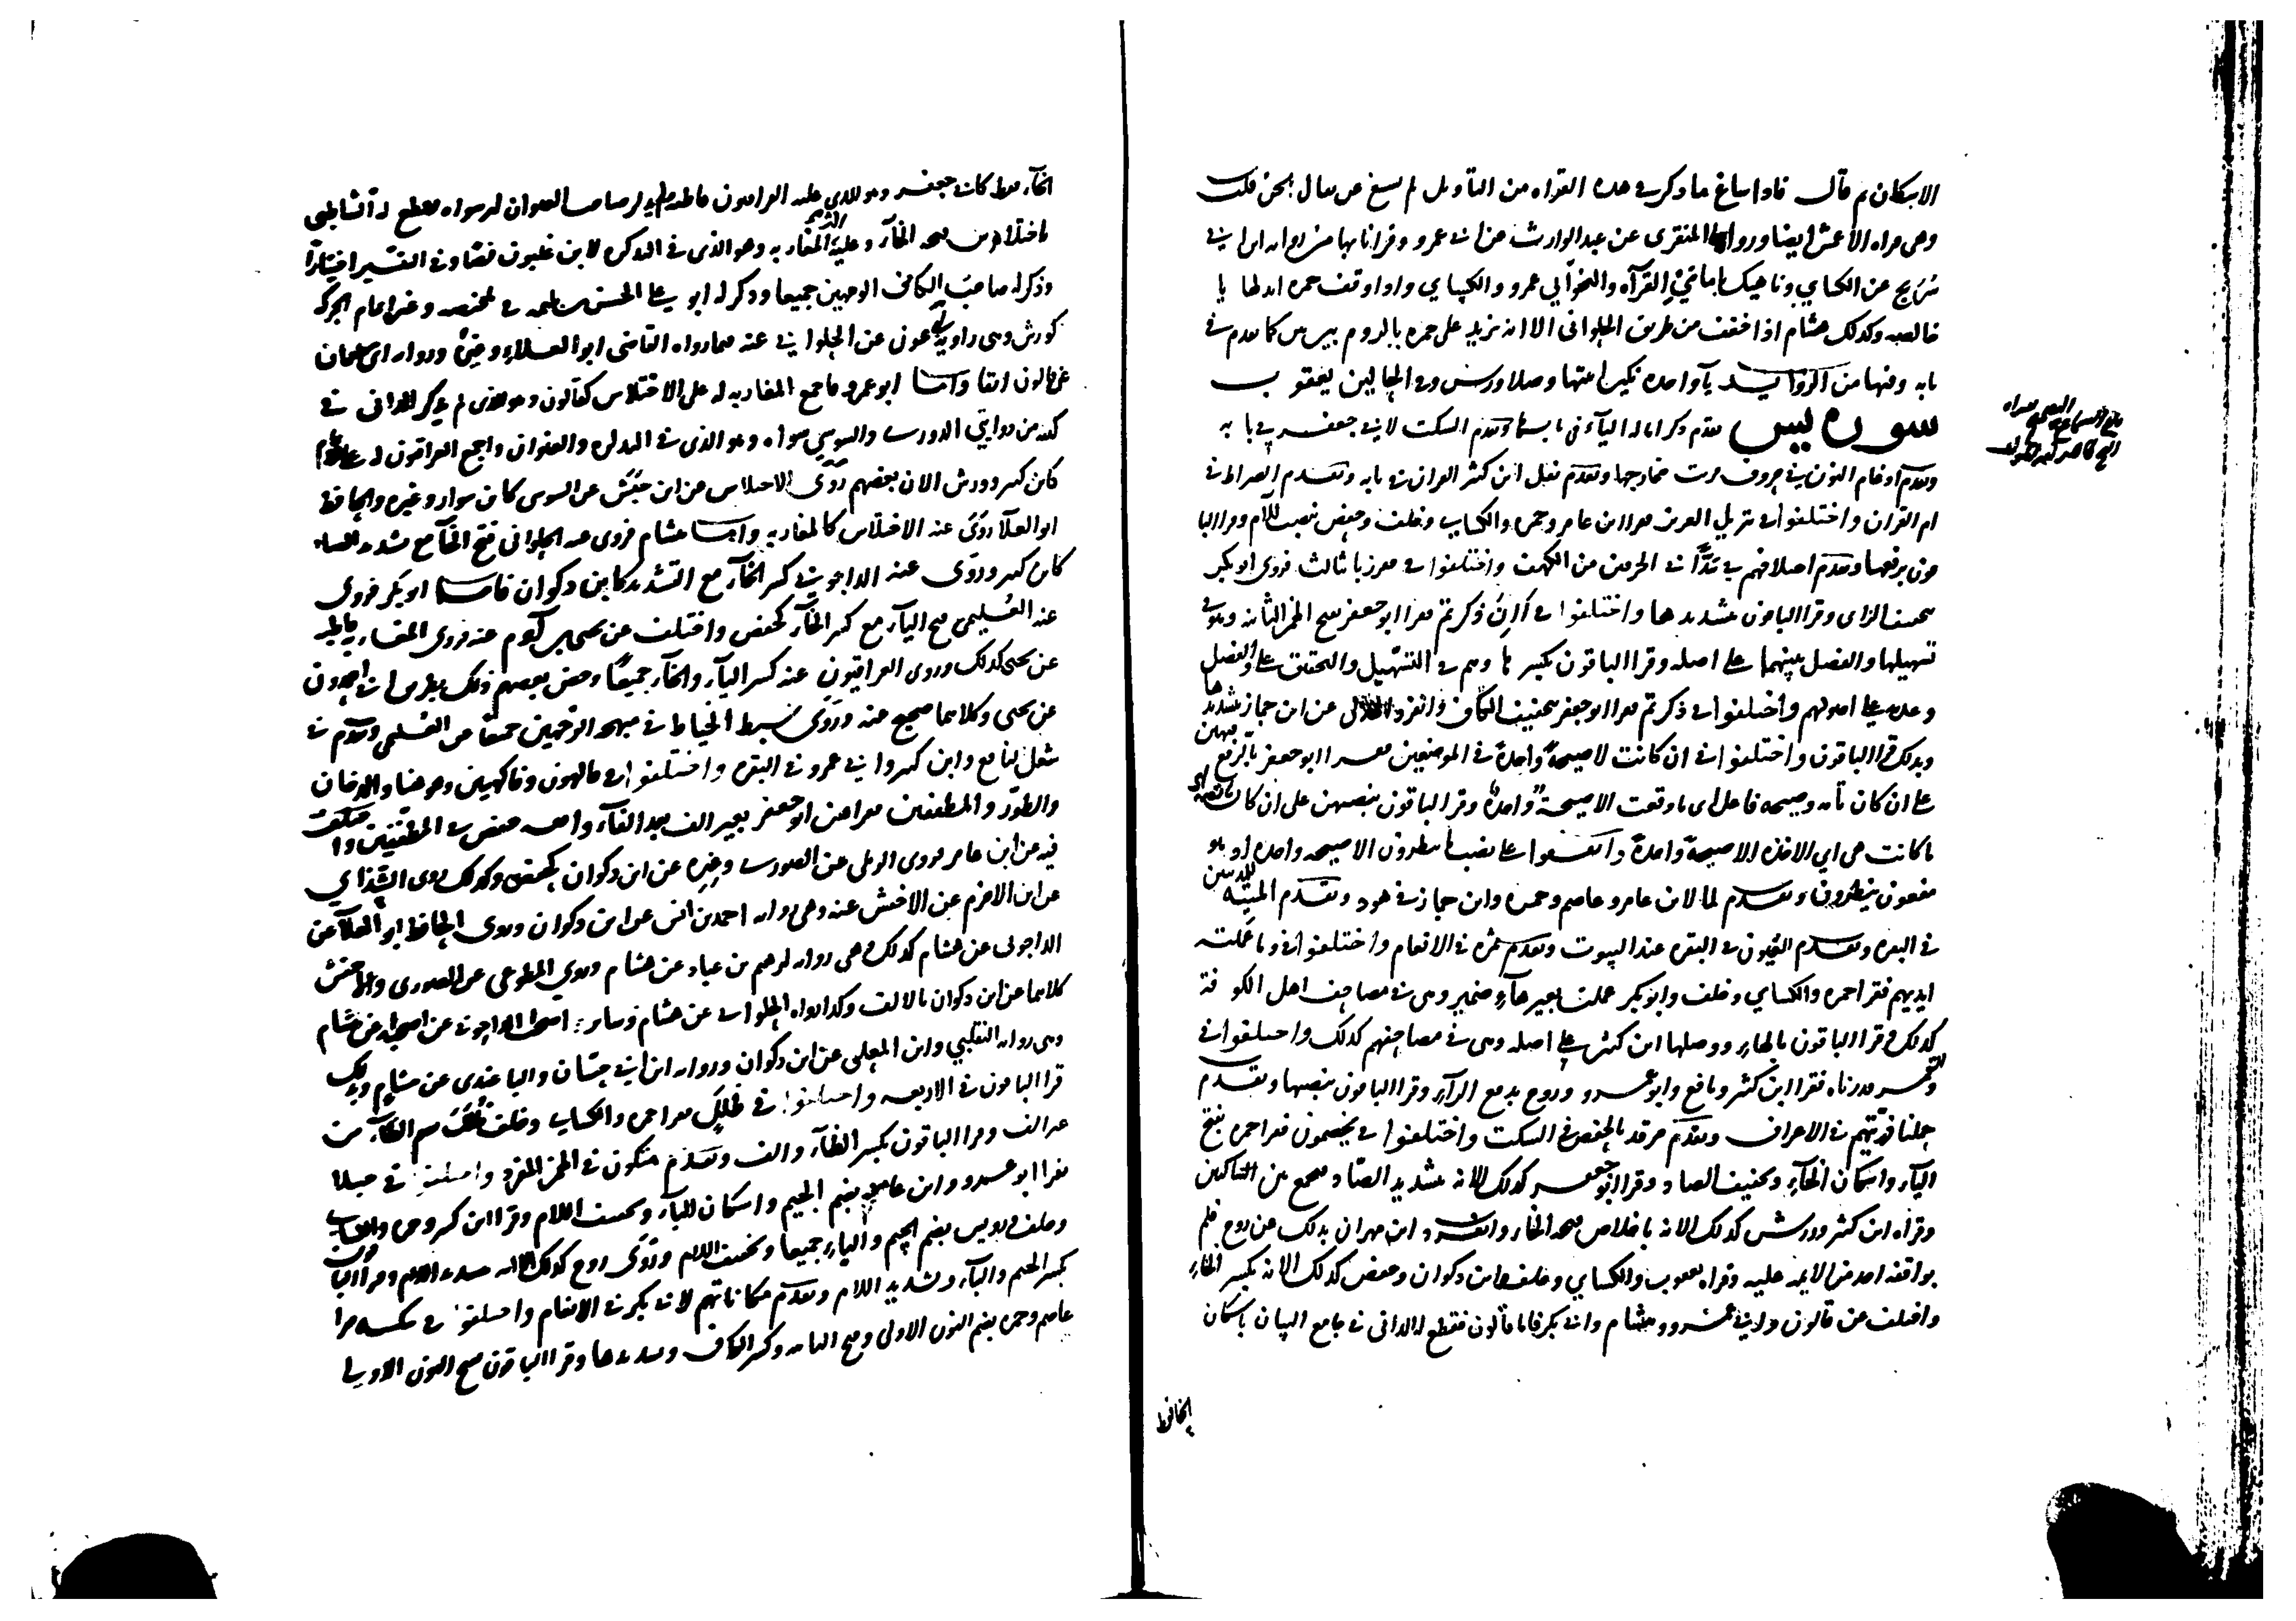 الاسكان ثم قال فاذا ساغ ما ذكر في هذه القراه من التاويل لم يسغ ان يقال لحن قلت
وهي قراه الاعمش ايضا ورواها المنقري عن عبد الوارث عن ابي عمرو وقرانا بها من روايه ابن ابي
سريج عن الكساي وناهيك بامامي القرآه والنحو ابي عمرو والكساي واذا وقف حمزه ابدلها يا
خالصه وكذلك هشام اذا خفف من طريق الحلواني الا انه يزيد على حمزه بالروم بين بين كما تقدم في
بابه وفيها من الزوايد يآ واحده نكيري اثبتها وصلا ورش وفي الحالين يعقوب
سورة يس تقدم ذكر اماله اليآ في بابها وتقدم السكت لابي جعفر في بابه
وتقدم ادغام النون في حروف قربت مخارجها وتقدم نقل ابن كثير القران في بابه وتقدم الصراط في
ام القران واختلفوا في تنزيل العزيز فقرا ابن عامر وحمزه والكساي وخلف وحفص بنصب اللام وقرا البا
قون برفعها وتقدم اختلافهم في سدا في الحرفين من الكهف واختلفوا في فعززنا بثالث فروى ابو بكر
بتخفيف الزاي وقرا الباقون بتشديدها واختلفوا في أان ذكرتم فقرا ابو جعفر بفتح الهمزه الثانيه وهو في
تسهيلها والفصل بينهما على اصله وقرا الباقون بكسرها وهم في التسهيل والتحقيق والفصل
وعدمه على اصولهم واختلفوا في ذكرتم فقرا ابو جعفر بتخفيف الكاف وانفرد الهذلي عن ابن جماز بتشديدها
وبذلك قرا الباقون واختلفوا في ان كانت الا صيحة واحدة في الموضعين فقرا ابو جعفر بالرفع فيهن
على ان كان تامه وصيحه فاعل اي ما وقعت الا صيحة واحدة وقرا الباقون بنصبهن على ان كان ناقصه اي
ما كانت هي اي الاخذه الا صيحة واحدة واتفقوا على نصب ما ينظرون الا صيحه واحده اذ هو
مفعول ينظرون وتقدم لما لابن عامر وعاصم وحمزه وابن جماز في هود وتقدم الميتة للمدنيين
في البقره وتقدم العيون في البقره عند البيوت وتقدم ثمره في الانعام واختلفوا في وما عملته
ايديهم فقرا حمزه والكساي وخلف وابو بكر عملت بغير هآء ضمير وهي في مصاحف اهل الكوفة
كذلك وقرا الباقون بالهاء ووصلها ابن كثير على اصله وهي في مصاحفهم كذلك واختلفوا في
والقمر قدرناه فقرا ابن كثير ونافع وابو عمرو وروح برفع الرآء وقرا الباقون بنصبها وتقدم
حملنا ذريتهم في الاعراف وتقدم مرقدنا لحفص في السكت واختلفوا في يخصمون فقرا حمزه بفتح
اليآء واسكان الخآء وتخفيف الصاد وقرا ابو جعفر كذلك الا انه بتشديد الصاد فيجمع بين الساكنين
وقراه ابن كثير وورش كذلك الا انه باخلاص فتحه الخاء وانفرد ابن مهران بذلك عن روح فلم
يوافقه احد من الايمه عليه وقراه يعقوب والكساي وخلف وابن ذكوان وحفص كذلك الا انه بكسر الخاء
واختلف عن قالون وابي عمرو وهشام وابي بكر فاما قالون فقطع له الداني في جامع البيان باسكان
الخآء فقط كابي جعفر وهو الذي عليه العراقيون قاطبه ولم يذكر صاحب العنوان له سواه وقطع له الشاطبي
باختلاس فتحه الخآء وعليه اكثر المغاربه وهو الذي في التذكره لابن غلبون نصا وفي التيسير اختيارا
وذكر له صاحب الكافي الوجهين جميعا وذكر له ابو علي الحسن بن بليمه في تلخيصه وغيره اتمام الحركه
كورش وهي روايه ابي عون عن الحلواني عنه فيما رواه القاضي ابو العلاء وغيره وروايه ابي سليمان
عن قالون ايضا واما ابو عمرو فاجمع المغاربه له على الاختلاس كقالون وهو الذي لم يذكر الداني في
كتبه من روايتي الدوري والسوسي سواه وهو الذي في التذكره والعنوان واجمع العراقيون له على الاتمام
كابن كثير وورش الا ان بعضهم روى الاختلاس عن ابن حبش عن السوسي كابن سوار وغيره والحافظ
ابو العلآ روى عنه الاختلاس كالمغاربه واما هشام فروى عنه الحلواني فتح الخآ مع تشديد الصاد
كابن كثير وروى عنه الداجوني كسر الخآء مع التشديد كابن ذكوان فاما ابو بكر فروى
عنه العليمي فتح اليآء مع كسر الخآء كحفص واختلف عن يحيى بن آدم عنه فروى المغاربه قاطبه
عن يحيى كذلك وروى العراقيون عنه كسر اليآء والخآء جميعا وخص بعضهم ذلك بطريق ابي حمدون
عن يحيى وكلاهما صحيح عنه وروى سبط الخياط في مبهجه الوجهين جميعا عن العليمي وتقدم في
شغل لنافع وابن كثير وابي عمرو في البقره واختلفوا في فاكهون وفاكهين وهو هنا والدخان
والطور والمطففين فقراهن ابو جعفر بغير الف بعد الفآء وافقه حفص في المطففين واختلف
فيه عن ابن عامر فروى الرملي عن الصوري وغيره عن ابن ذكوان كحفص وكذلك روى الشذاي
عن ابن الاخرم عن الاخفش عنه وهي روايه احمد بن انس عن ابن ذكوان وروى الحافظ ابو العلآ عن
الداجوني عن هشام كذلك وهي روايه ابرهيم بن عباد عن هشام وروى المطوعي عن الصوري والاخفش
كلاهما عن ابن ذكوان بالالف وكذا رواه الحلواني عن هشام وساير اصحاب الداجوني عن اصحابه عن هشام
وهي روايه التغلبي وابن المعلى عن ابن ذكوان وروايه ابن ابي حسان والباغندي عن هشام وبذلك
قرا الباقون في الاربعه واختلفوا في ظلال فقرا حمزه والكساي وخلف ظلل بضم الظآء من
غير الف وقرا الباقون بكسر الظآء والف وتقدم متكون في الهمز المفرد واختلفوا في جبلا
فقرا ابو عمرو وابن عامر بضم الجيم واسكان البآء وتخفيف اللام وقرا ابن كثير وحمزه والكساي
وخلف ورويس بضم الجيم والباء جميعا وتخفيف اللام وروى روح كذلك الا انه بتشديد اللام وقرا الباقون
بكسر الجيم والبآء وتشديد اللام وتقدم مكاناتهم لابي بكر في الانعام واختلفوا في ننكسه فقرا
عاصم وحمزه بضم النون الاولى وفتح الثانيه وكسر الكاف وتشديدها وقرا الباقون بفتح النون الاولى